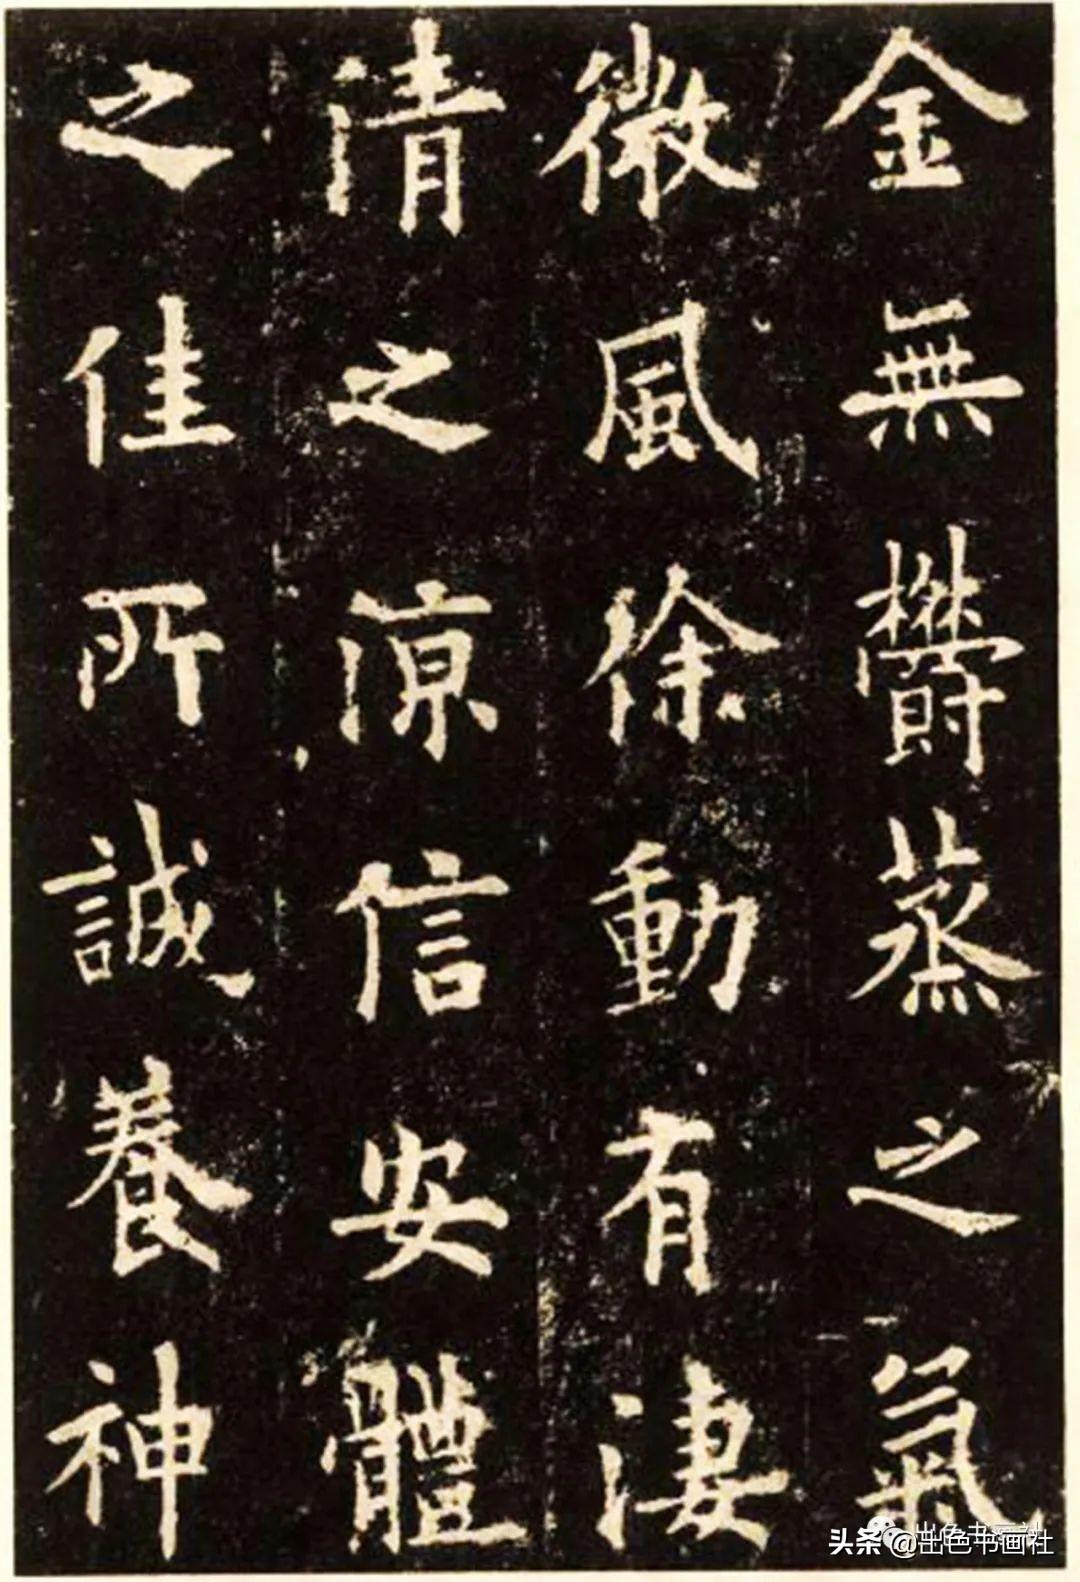 金無欝蒸之氣
微風徐動有淒
清之涼信安體
之佳所誠養神
头条 @出色书画社